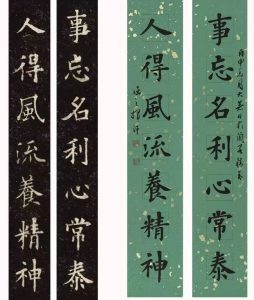 事忘名利心常泰
人得風流養精神
事忘名利心常泰
人得風流養精神